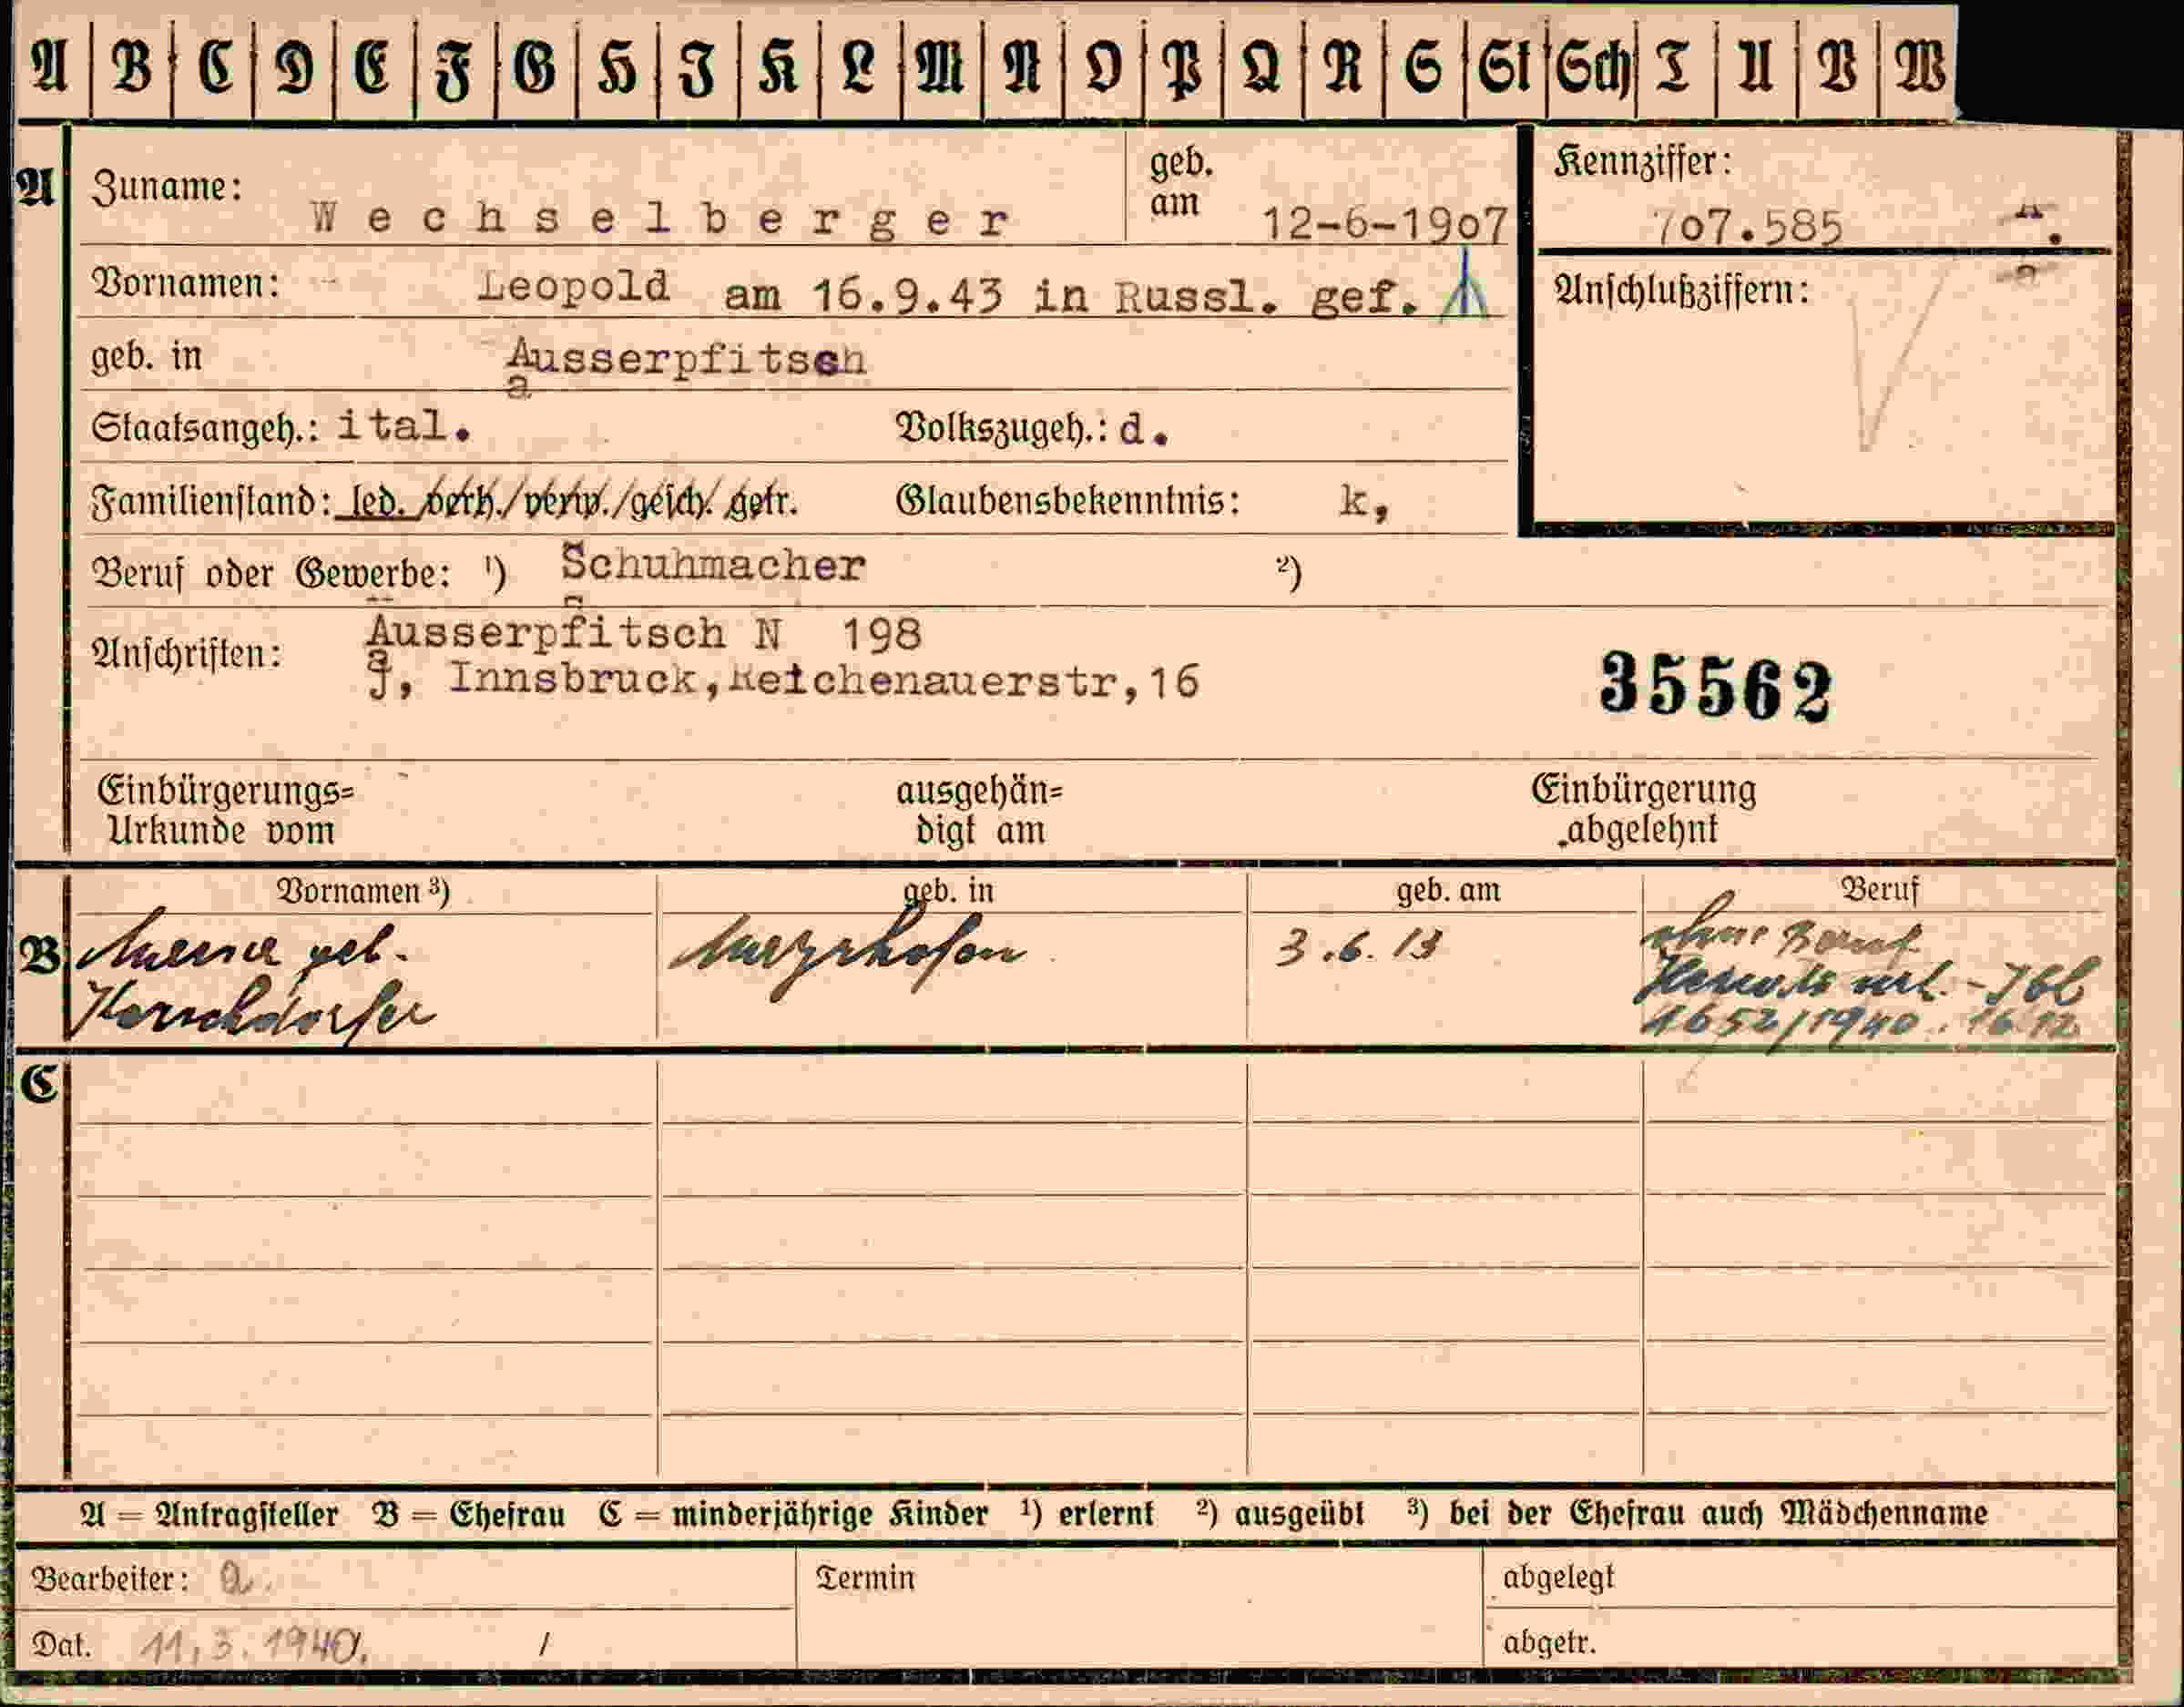 A B C D E F G H I K L M N O P Q R S St Sch T U V W
A Zuname: Wechselberger geb. am 12-6-1907 Kennziffer: 707.585
Vornamen: Leopold am 16.9.43 in Russl. gef. Anschlußziffern:
geb. in Ausserpfitsch
Staatsangeh.: ital. Volkszugeh.: d.
Familienstand: led. verh./verw./gesch. getr. Glaubensbekenntnis: k,
Beruf oder Gewerbe: ¹) Schuhmacher ²)
Anschriften: Ausserpfitsch N 198
J, Innsbruck, Reichenauerstr, 16
35562
Einbürgerungs= ausgehän= Einbürgerung
Urkunde vom digt am abgelehnt
B Vornamen ³) geb. in geb. am Beruf
geb. Mayrhofen 3.6.13 ohne Beruf
1652/1940. 16.12
C
A = Antragsteller B = Ehefrau C = minderjährige Kinder ¹) erlernt ²) ausgeübt ³) bei der Ehefrau auch Mädchenname
Bearbeiter: a. Termin abgelegt
Dat. 11.3.1940. / abgetr.